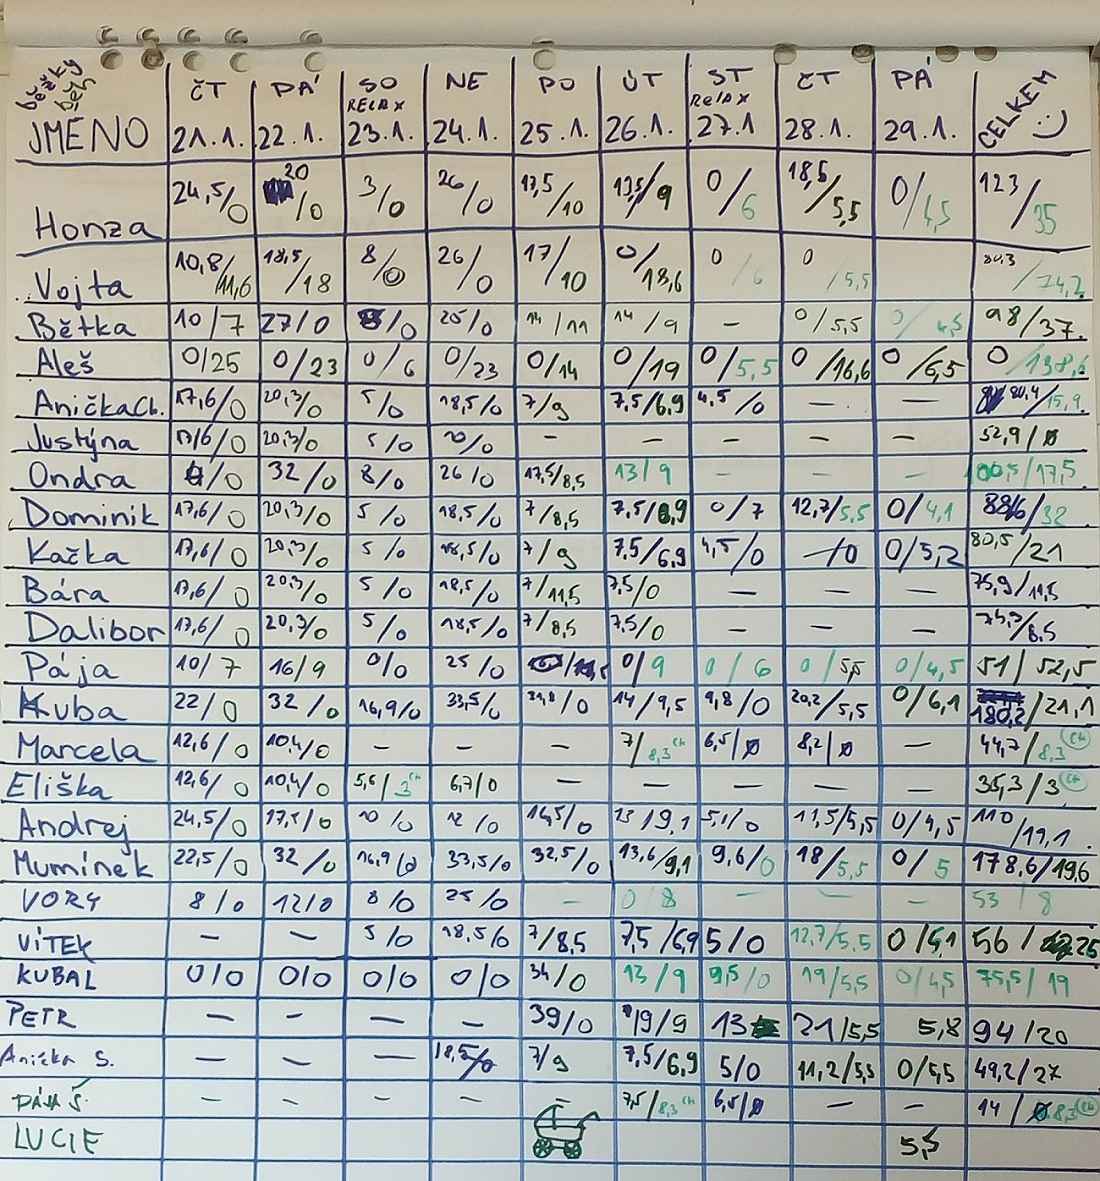 běžky běh
JMÉNO ČT 21.1. PÁ 22.1. SO RELAX 23.1. NE 24.1. PO 25.1. ÚT 26.1. ST RELAX 27.1 ČT 28.1. PÁ 29.1. CELKEM :)
Honza 24,5/0 20/0 3/0 26/0 17,5/10 13,5/9 0/6 18,5/5,5 0/4,5 123/35
Vojta 10,8/11,6 18,5/18 8/0 26/0 17/10 0/18,6 0/6 0/5,5 80,3/74,2
Bětka 10/7 27/0 /0 25/0 14/11 14/9 – 0/5,5 0/4,5 98/37
Aleš 0/25 0/23 0/6 0/23 0/14 0/19 0/5,5 0/16,6 0/6,5 0/138,6
Anička Ch. 17,6/0 20,3/0 5/0 18,5/0 7/9 7,5/6,9 4,5/0 – – 80,4/15,9
Justýna 17,6/0 20,3/0 5/0 10/0 – – – – – 52,9/0
Ondra /0 32/0 8/0 26/0 17,5/8,5 13/9 – – – /17,5
Dominik 17,6/0 20,3/0 5/0 18,5/0 7/8,5 7,5/6,9 0/7 12,7/5,5 0/4,1 88,6/32
Kačka 17,6/0 20,3/0 5/0 18,5/0 7/9 7,5/6,9 4,5/0 –/0 0/5,2 80,5/21
Bára 17,6/0 20,3/0 5/0 18,5/0 7/11,5 7,5/0 – – – 75,9/11,5
Dalibor 17,6/0 20,3/0 5/0 18,5/0 7/8,5 7,5/0 – – – 75,9/8,5
Pája 10/7 16/9 0/0 25/0 0/9 0/6 0/5,5 0/4,5 51/52,5
Kuba 22/0 32/0 16,9/0 33,5/0 31,8/0 14/9,5 9,8/0 20,2/5,5 0/6,1 180,2/21,1
Marcela 12,6/0 10,4/0 – – – 7/8,3 CH 6,5/0 8,2/0 – 44,7/8,3 CH
Eliška 12,6/0 10,4/0 5,6/3 CH 6,7/0 – – – – – 35,3/3 CH
Andrej 24,5/0 17,5/0 10/0 12/0 14,5/0 13/9,1 5,1/0 13,5/5,5 0/4,5 110/19,1
Mumínek 22,5/0 32/0 16,9/0 33,5/0 32,5/0 13,6/9,1 9,6/0 18/5,5 0/5 178,6/19,6
VORY 8/0 12/0 8/0 25/0 – 0/8 – – – 53/8
VÍTEK – – 5/0 18,5/0 7/8,5 7,5/6,9 5/0 12,7/5,5 0/5,1 56/25
KUBAL 0/0 0/0 0/0 0/0 34/0 13/9 9,5/0 19/5,5 0/4,5 75,5/19
PETR – – – – 39/0 19/9 13 21/5,5 5,8 94/20
Anička S. – – – 18,5/0 7/9 7,5/6,9 5/0 11,2/5,5 0/5,5 49,2/27
PÁJA Š. – – – – – 7,5/8,3 CH 6,5/0 – – 14/8,3 CH
LUCIE 5,5